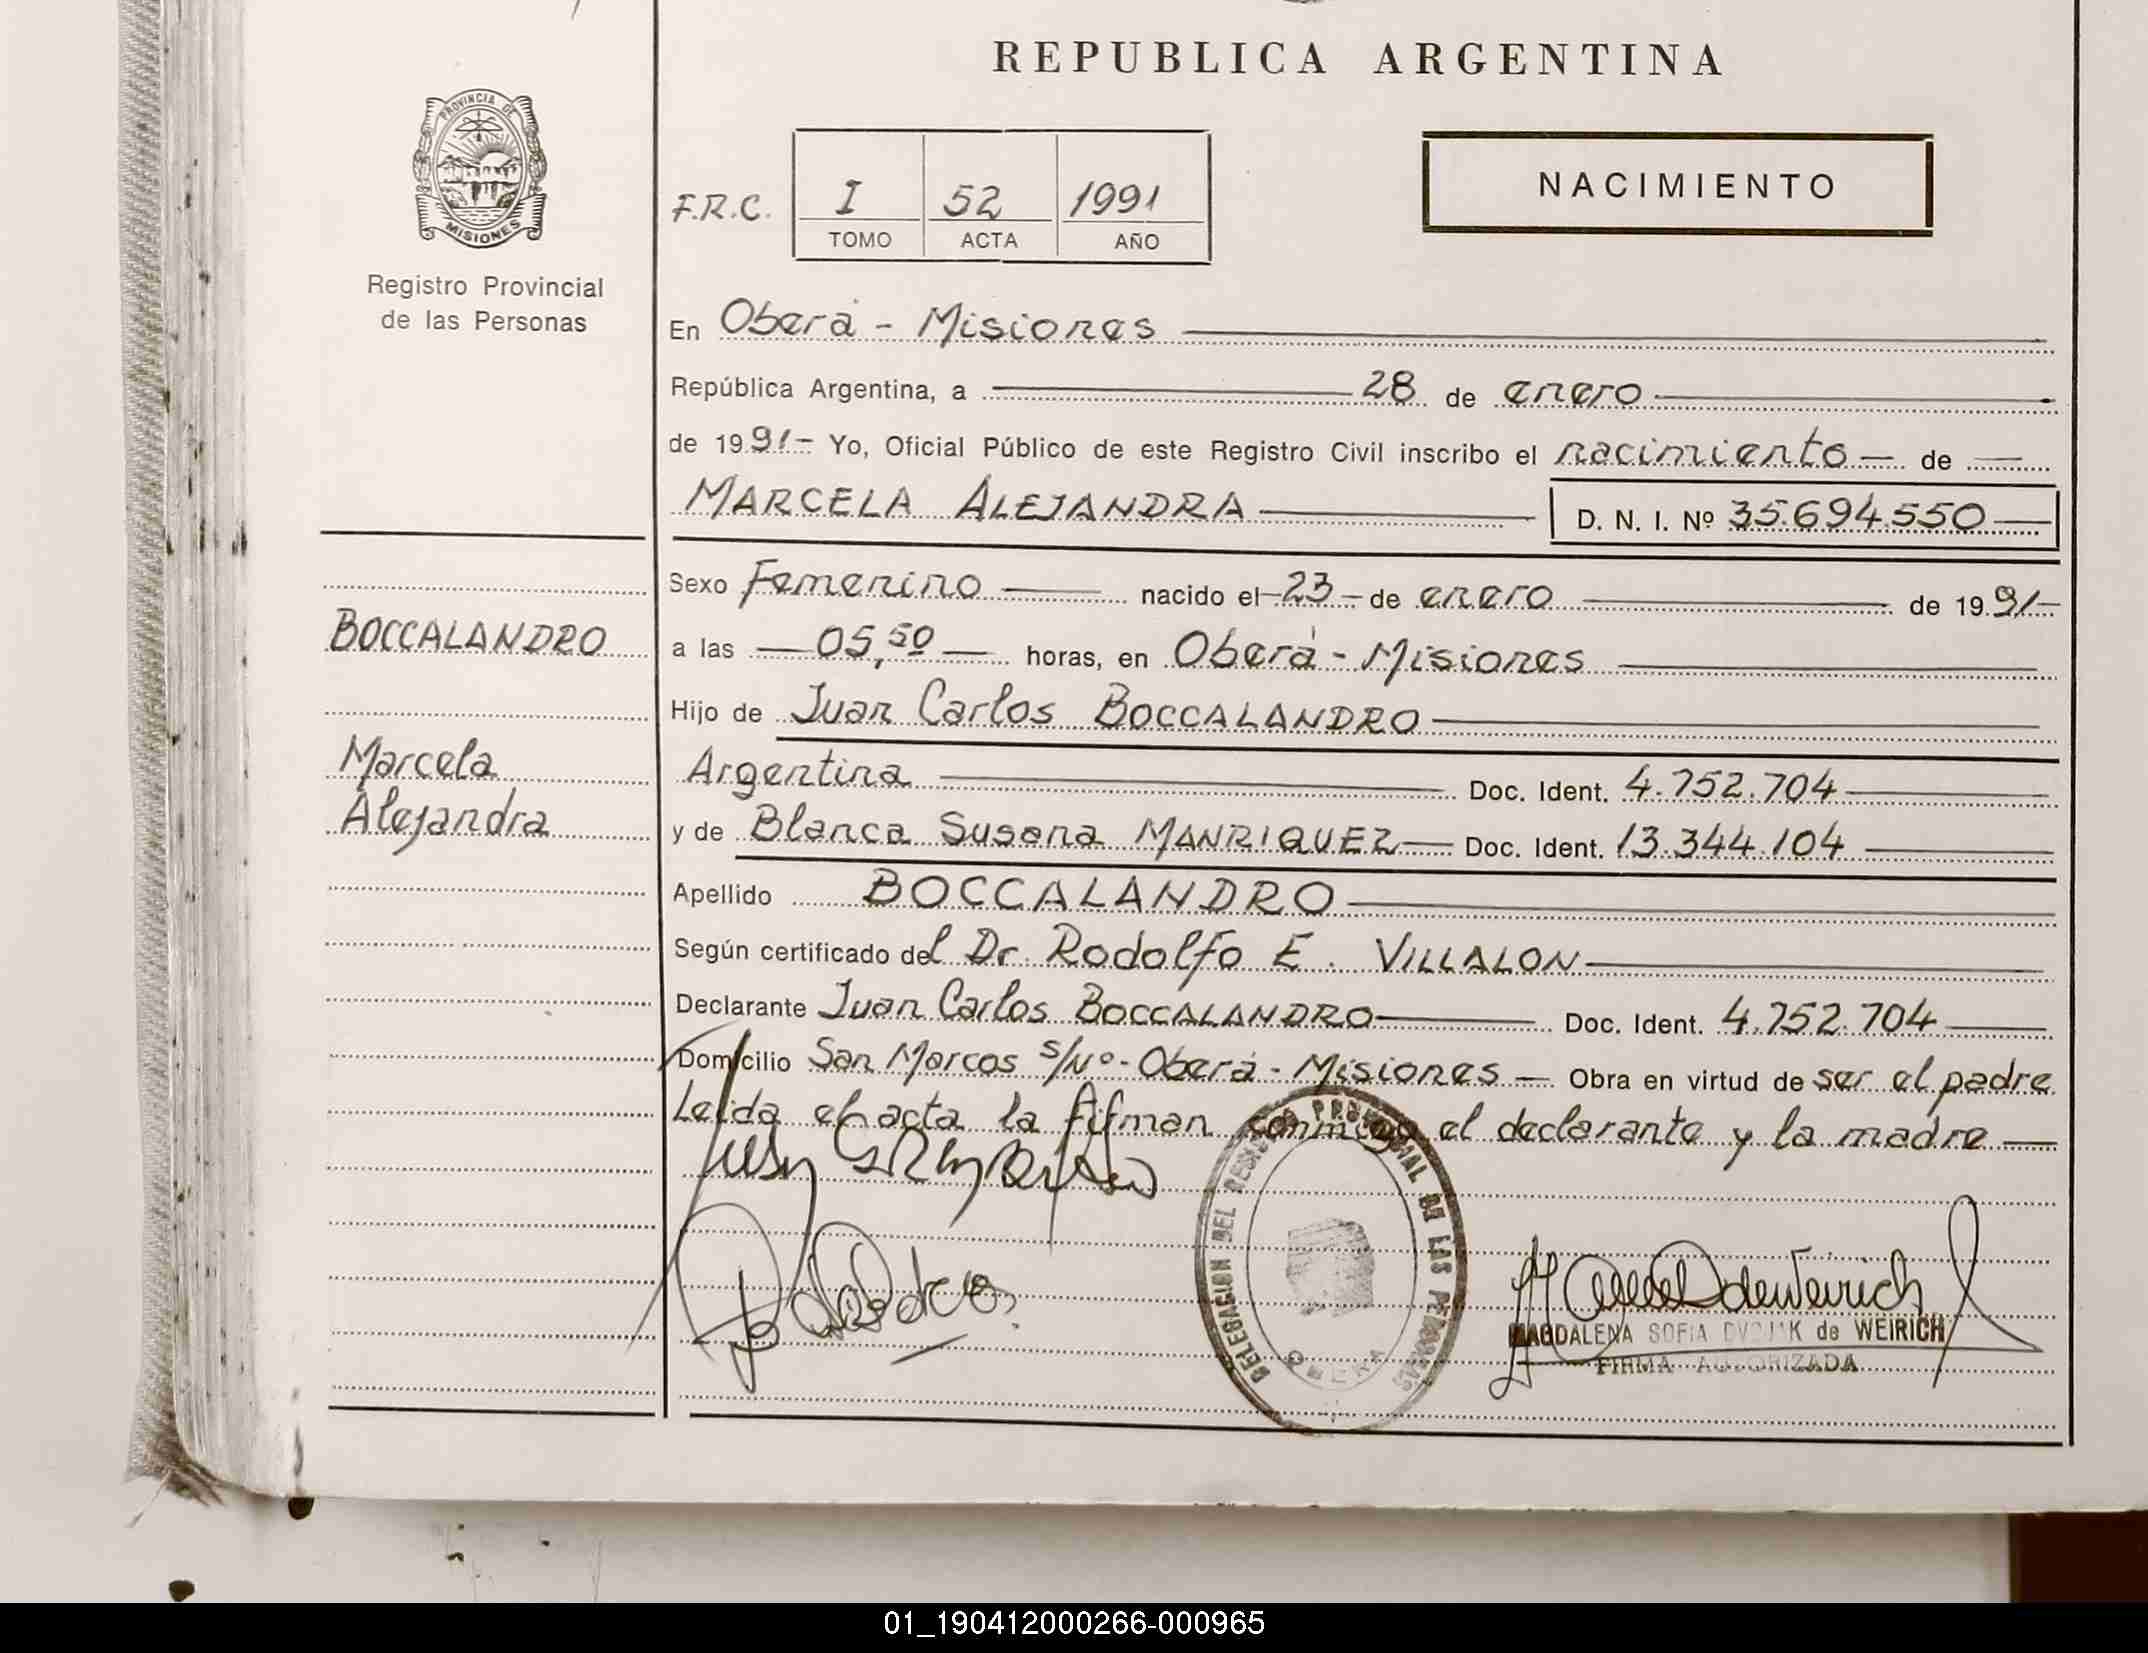 REPUBLICA ARGENTINA
PROVINCIA DE
MISIONES
Registro Provincial
de las Personas
F.R.C.
I 52 1991
TOMO ACTA AÑO
NACIMIENTO
En Oberá - Misiones
República Argentina, a 28 de enero
de 1991 - Yo, Oficial Público de este Registro Civil inscribo el nacimiento - de
MARCELA ALEJANDRA D. N. I. Nº 35.694.550
Sexo Femenino nacido el 23 - de enero de 1991 -
a las 05,50 horas, en Oberá - Misiones
Hijo de Juan Carlos BOCCALANDRO
Argentina Doc. Ident. 4.752.704
y de Blanca Susana MANRIQUEZ Doc. Ident. 13.344.104
Apellido BOCCALANDRO
Según certificado del Dr. Rodolfo E. VILLALON
Declarante Juan Carlos BOCCALANDRO Doc. Ident. 4.752.704
Domicilio San Marcos s/Nº - Oberá - Misiones - Obra en virtud de ser el padre
Leída el acta la firman conmigo el declarante y la madre
BOCCALANDRO
Marcela
Alejandra
DELEGACION DEL REGISTRO PROVINCIAL DE LAS PERSONAS
OBERA
MAGDALENA SOFIA DVORJAK de WEIRICH
FIRMA AUTORIZADA
01_190412000266-000965